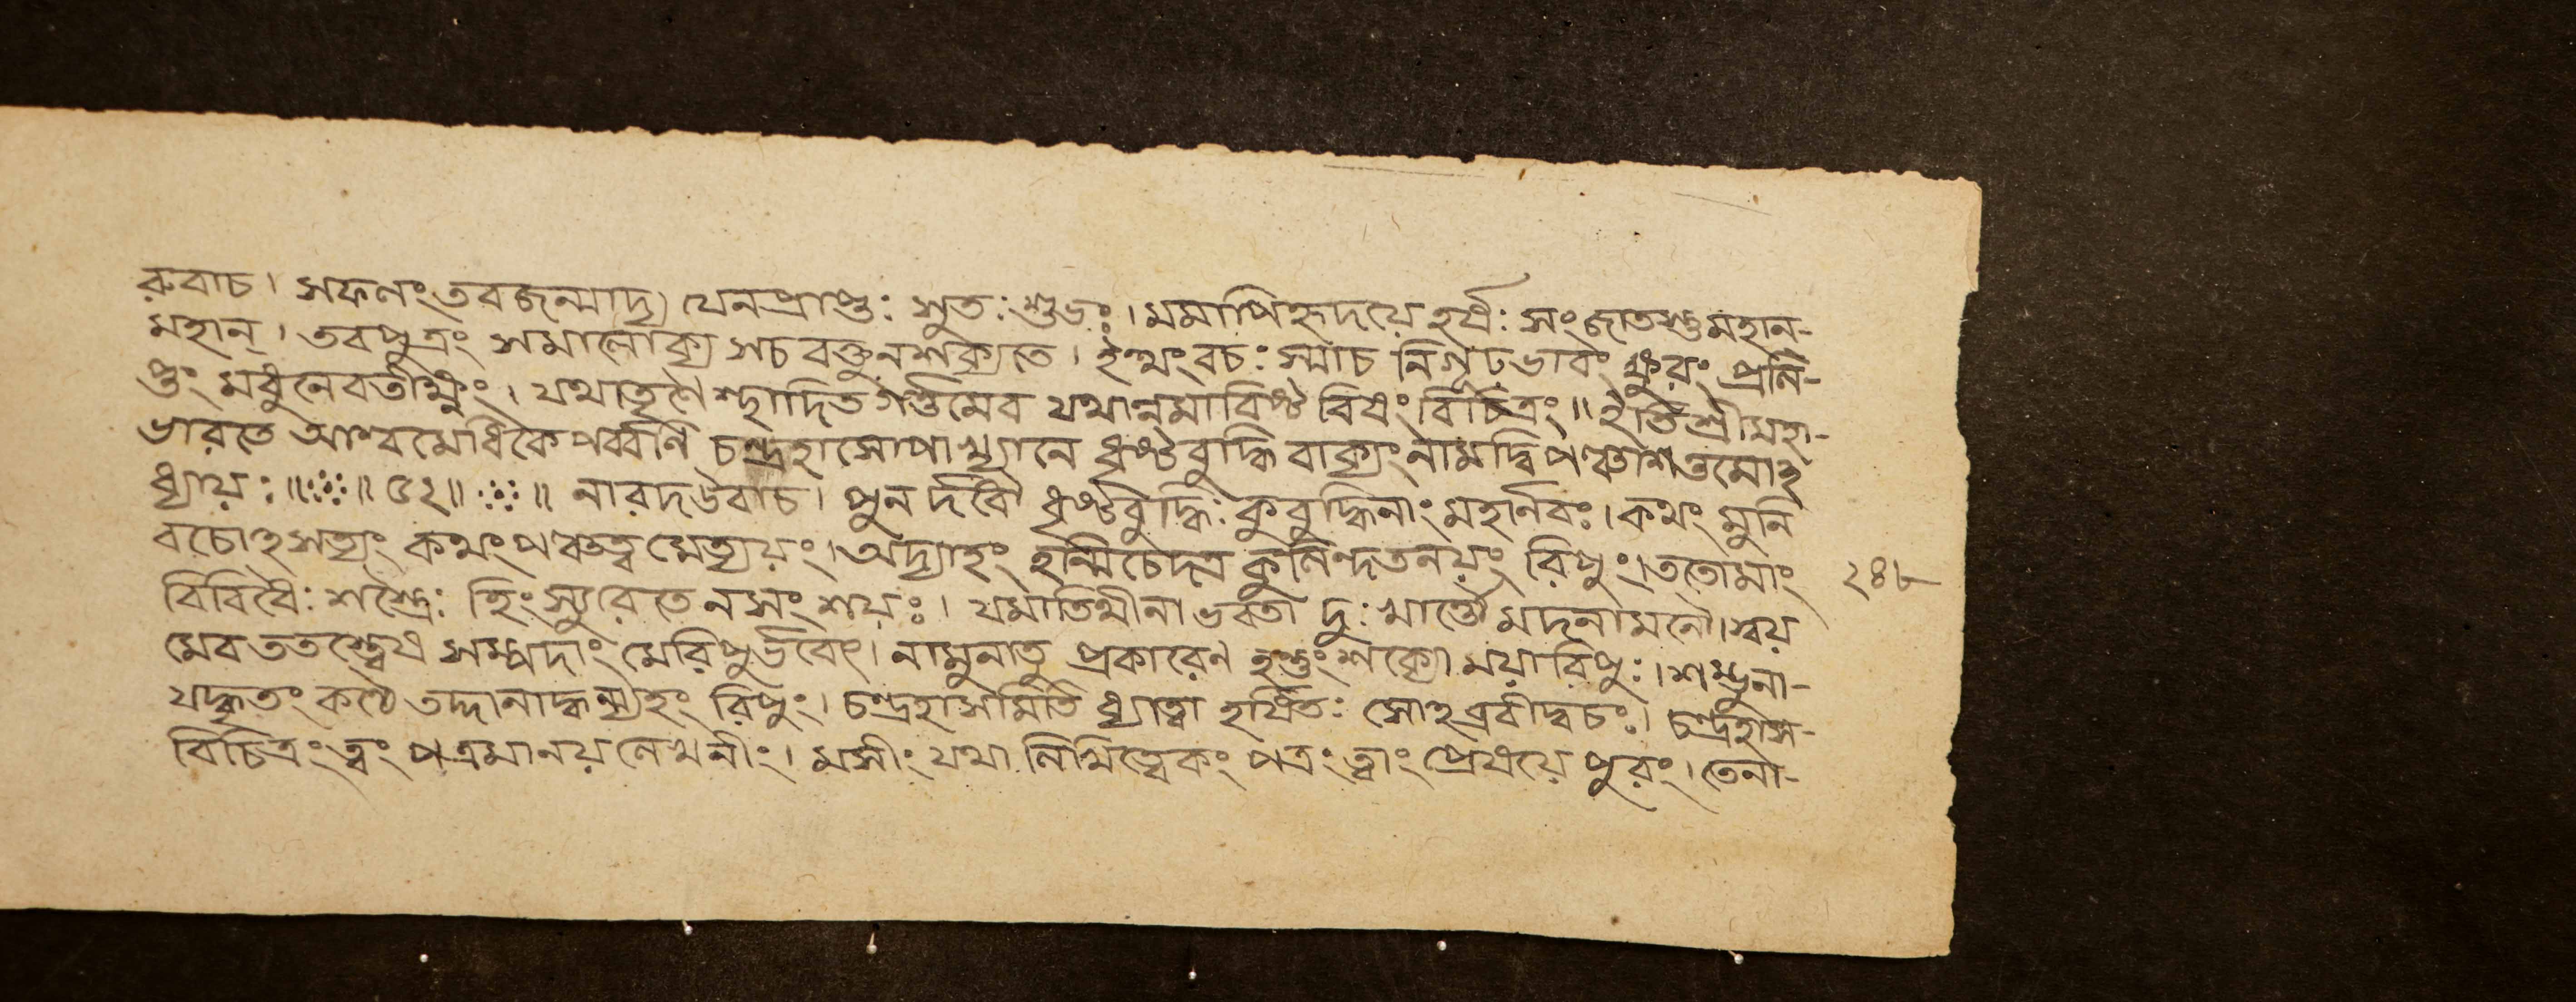 রুবাচ। সফলং তব জন্মাদ্য যেন প্রাপ্তঃ সুতঃ শুভঃ। মমাপি হৃদয়ে হর্ষঃ সংজাতস্তু মহান-
মহান্। তব পুত্রং সমালোক্য স চ বক্তুং ন শক্যতে। ইত্থং বচঃ স্মাচ নিগূঢভাবং ক্ষুরং প্রলি-
প্তং মধুনেব তীক্ষ্ণং। যথা তৃণৈশ্ছাদিত গর্ত্তমেব যথান্নমাবিষ্ট বিষং বিচিত্রং॥ ইতি শ্রীমহা-
ভারতে আশ্বমেধিকে পর্ব্বণি চন্দ্রহাসোপাখ্যানে ধৃষ্টবুদ্ধি বাক্যং নাম দ্বিপঞ্চাশত্তমোঽ
ধ্যায়ঃ॥ ॥ ৫২॥ ॥ নারদ উবাচ। পুনর্দধৌ ধৃষ্টবুদ্ধিঃ কুবুদ্ধিনাং মহার্ণবঃ। কথং মুনি
বচোঽসত্যং কথং পঞ্চত্বমেত্যয়ং। অদ্যাহং হন্মি চেদত্র কুলিন্দতনয়ং রিপুং। ততো মাং ২৪৮
বিবিধৈঃ শস্ত্রৈঃ হিংস্যুরেতে ন সংশয়ঃ। যমাতিথীনা ভবতা দুঃখার্ত্তৌ মদনামলৌ। স্বয়
মেব ততস্ত্বেষ সম্পদাং মে রিপুর্ভবেৎ। নামুনাতু প্রকারেণ হন্তুং শক্যো ময়া রিপুঃ। শম্ভুনা-
যদ্ধৃতং কণ্ঠে তদ্দানাদ্ধন্ম্যহং রিপুং। চন্দ্রহাসমিতি ধ্যাত্বা হর্ষিতঃ সোঽব্রবীদ্বচঃ। চন্দ্রহাস-
বিচিত্রং ত্বং পত্রমানয় লেখনীং। মসীং যথা লিখিত্বেকং পত্রং ত্বাং প্রেষয়ে পুরং। তেনা-